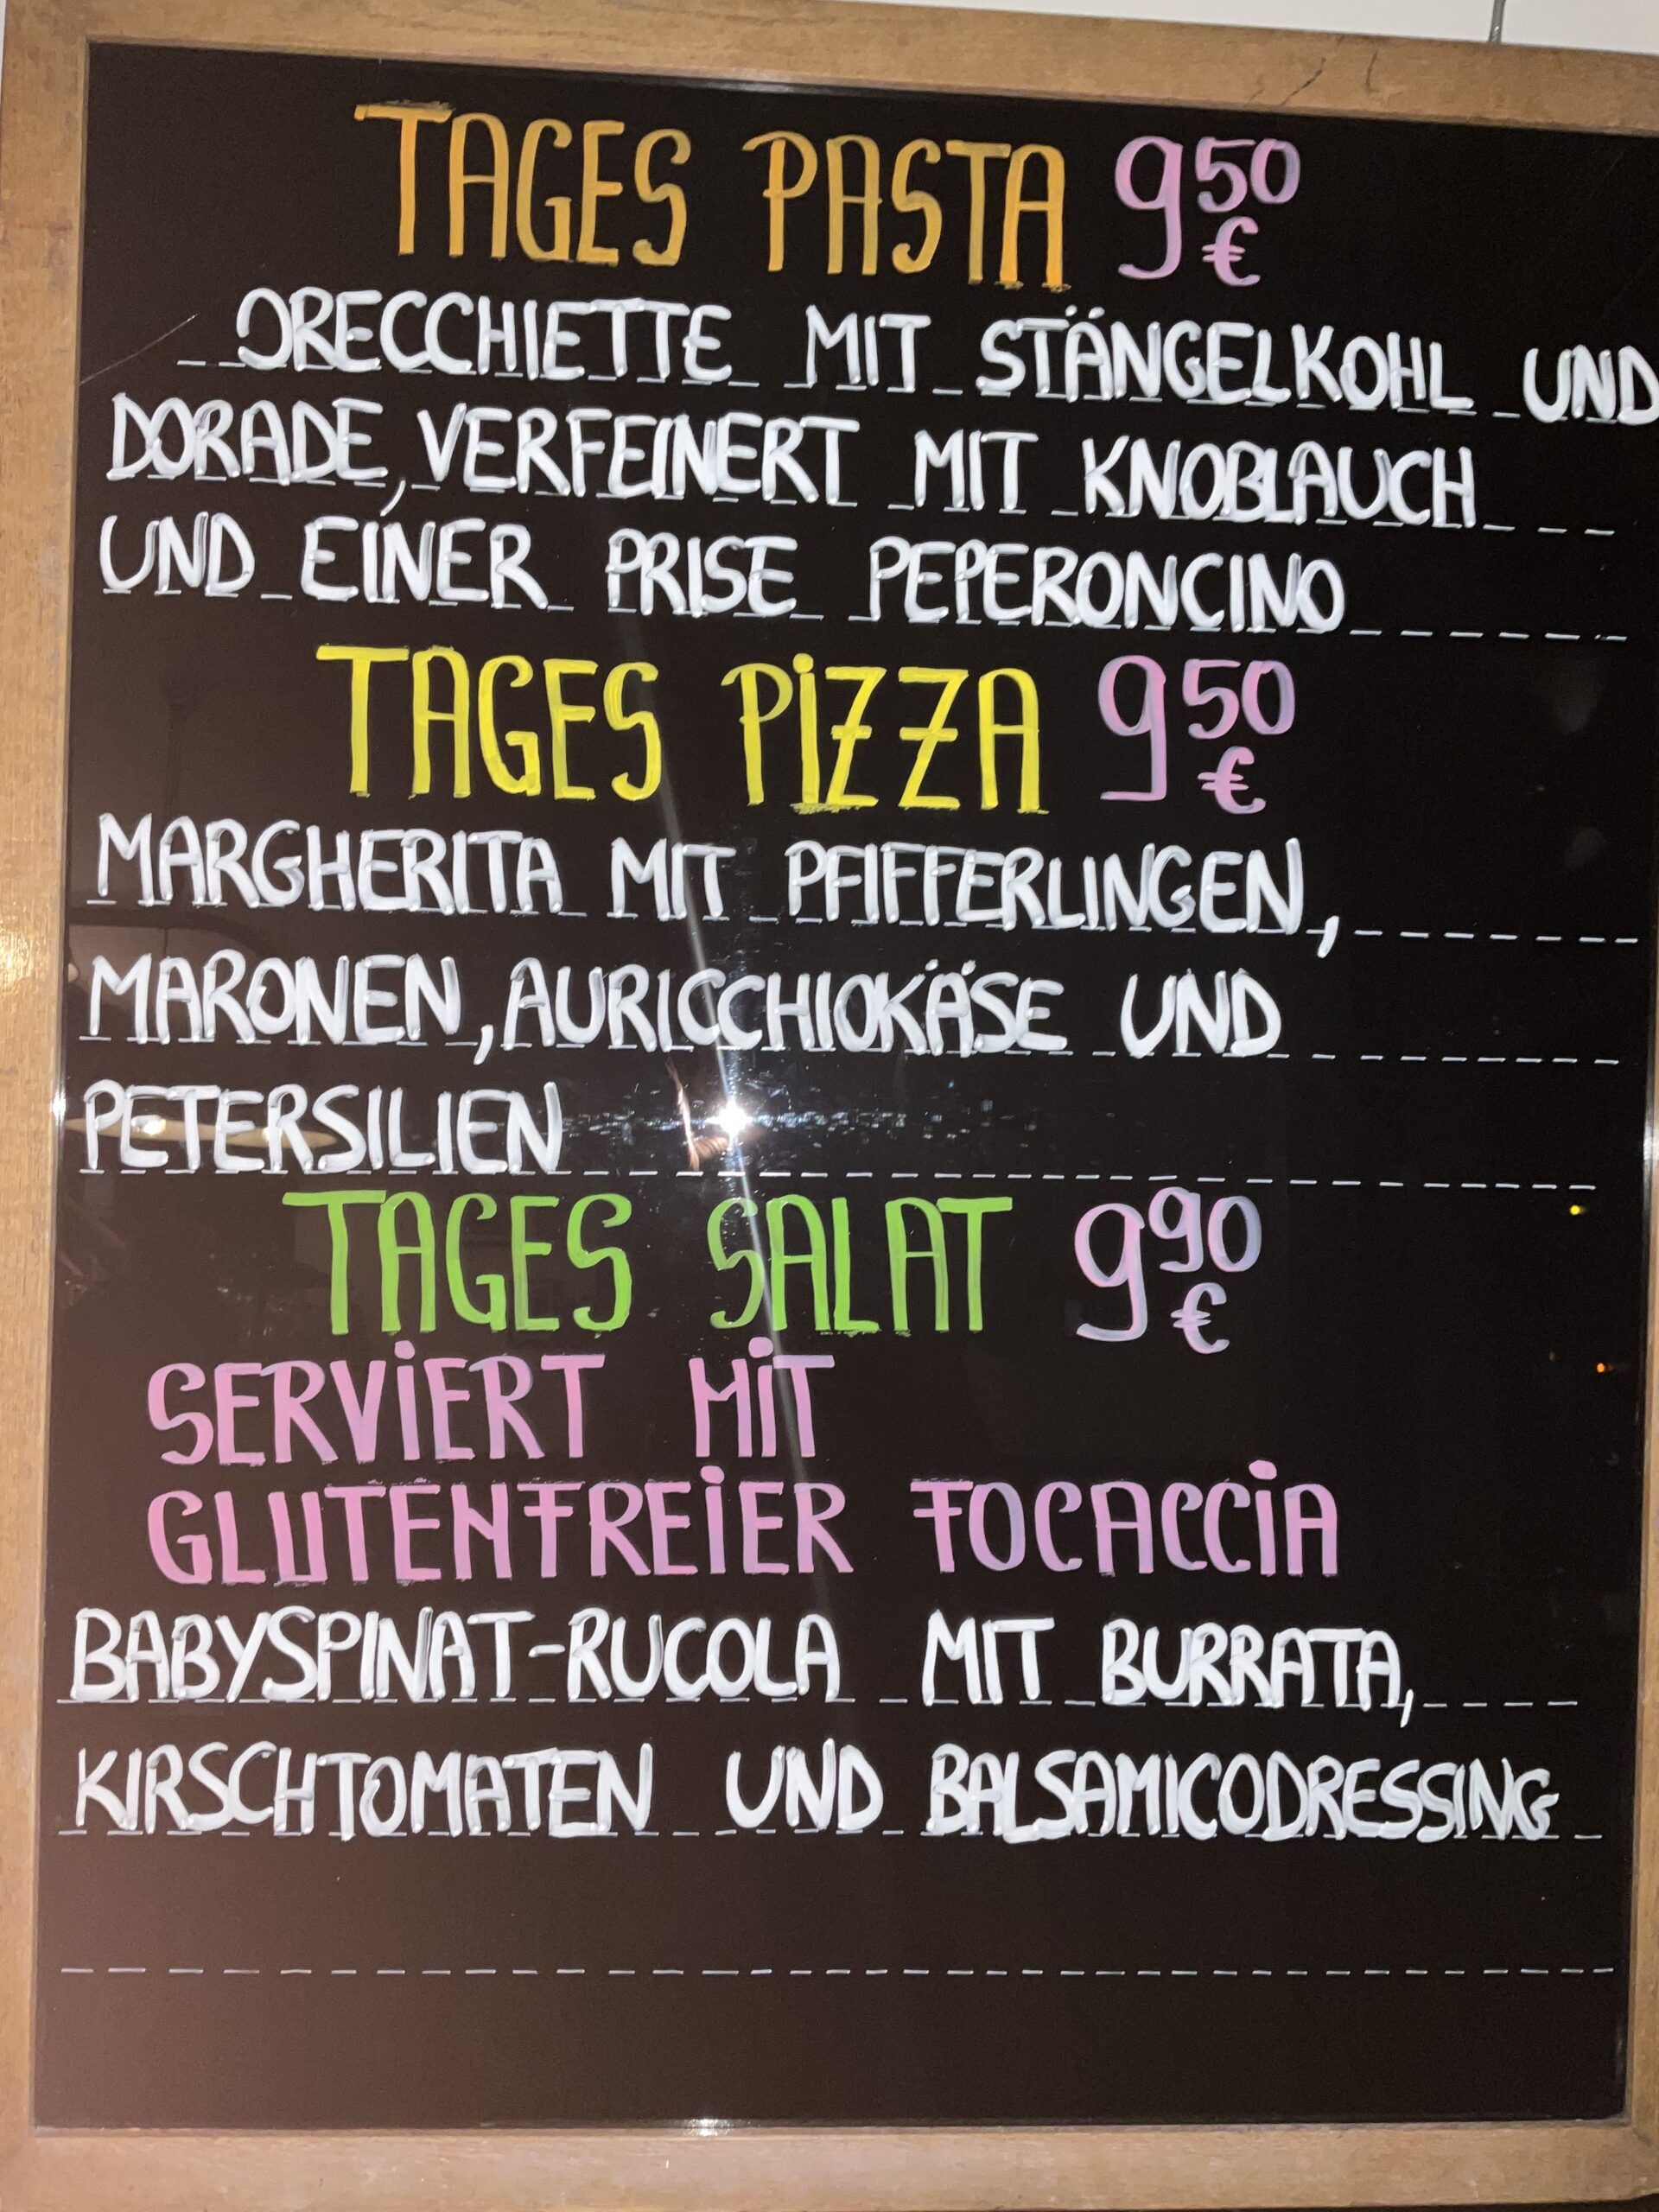 TAGES PASTA 9 50 €
ORECCHIETTE MIT STÄNGELKOHL UND
DORADE, VERFEINERT MIT KNOBLAUCH
UND EINER PRISE PEPERONCINO
TAGES PiZZA 9 50 €
MARGHERITA MIT PFIFFERLINGEN,
MARONEN, AURICCHIOKÄSE UND
PETERSILIEN
TAGES SALAT 9 90 €
SERViERT MiT
GLUTENFREiER FOCACCiA
BABYSPINAT-RUCOLA MIT BURRATA,
KIRSCHTOMATEN UND BALSAMICODRESSING